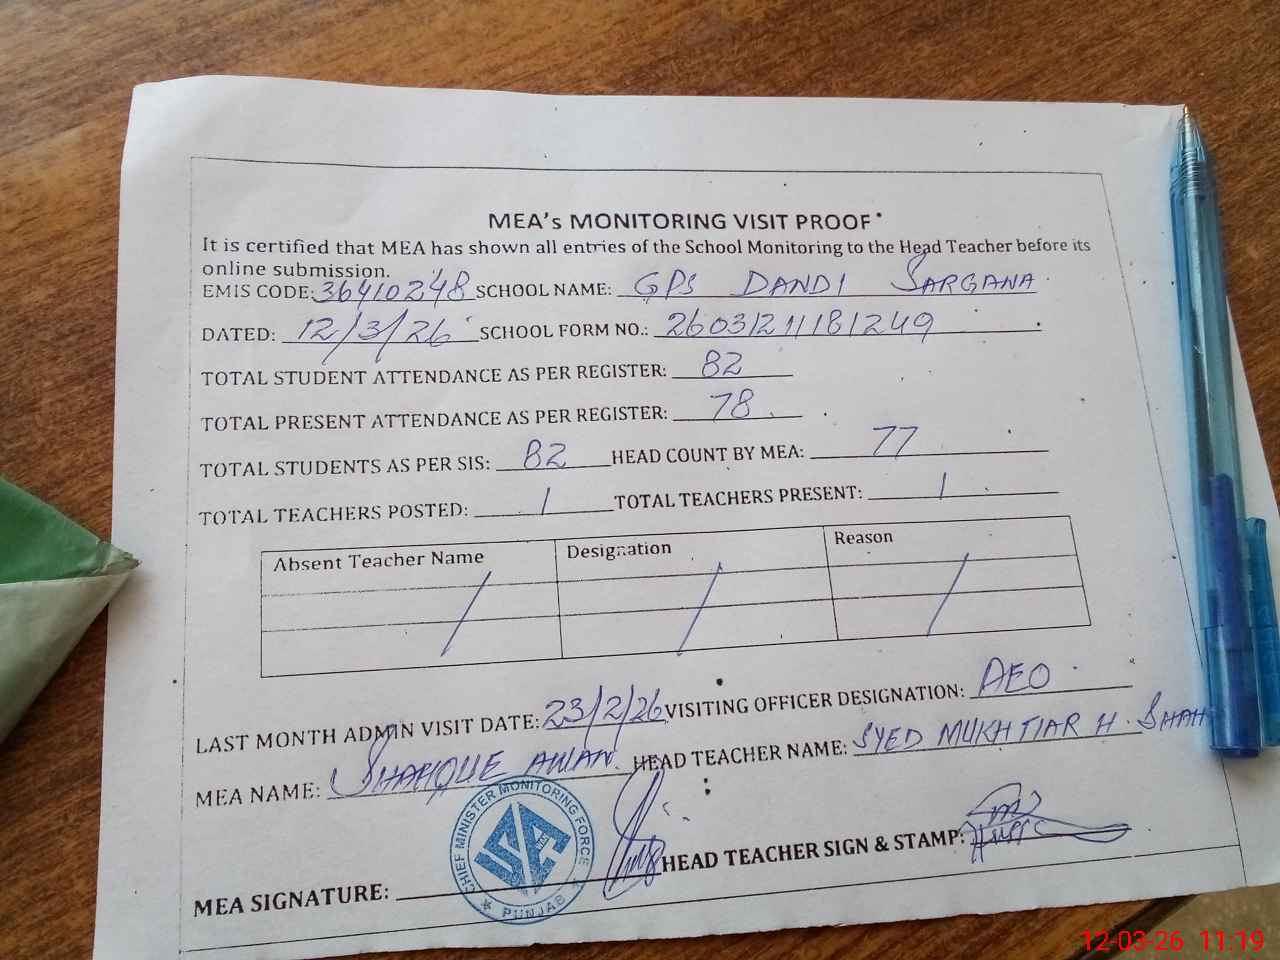 MEA's MONITORING VISIT PROOF
It is certified that MEA has shown all entries of the School Monitoring to the Head Teacher before its
online submission.
EMIS CODE: 36410248 SCHOOL NAME: GPS DANDI SARGANA
DATED: 12/3/26 SCHOOL FORM NO.: 260312111181249
TOTAL STUDENT ATTENDANCE AS PER REGISTER: 82
TOTAL PRESENT ATTENDANCE AS PER REGISTER: 78
TOTAL STUDENTS AS PER SIS: 82 HEAD COUNT BY MEA: 77
TOTAL TEACHERS POSTED: 1 TOTAL TEACHERS PRESENT: 1
Absent Teacher Name Designation Reason
/ / /
LAST MONTH ADMIN VISIT DATE: 23/2/26 VISITING OFFICER DESIGNATION: AEO
MEA NAME: SHAHQUE AWAN HEAD TEACHER NAME: SYED MUKHTIAR H. SHAH
CHIEF MINISTER MONITORING FORCE
PUNJAB
MEA SIGNATURE: HEAD TEACHER SIGN & STAMP:
12-03-26 11:19